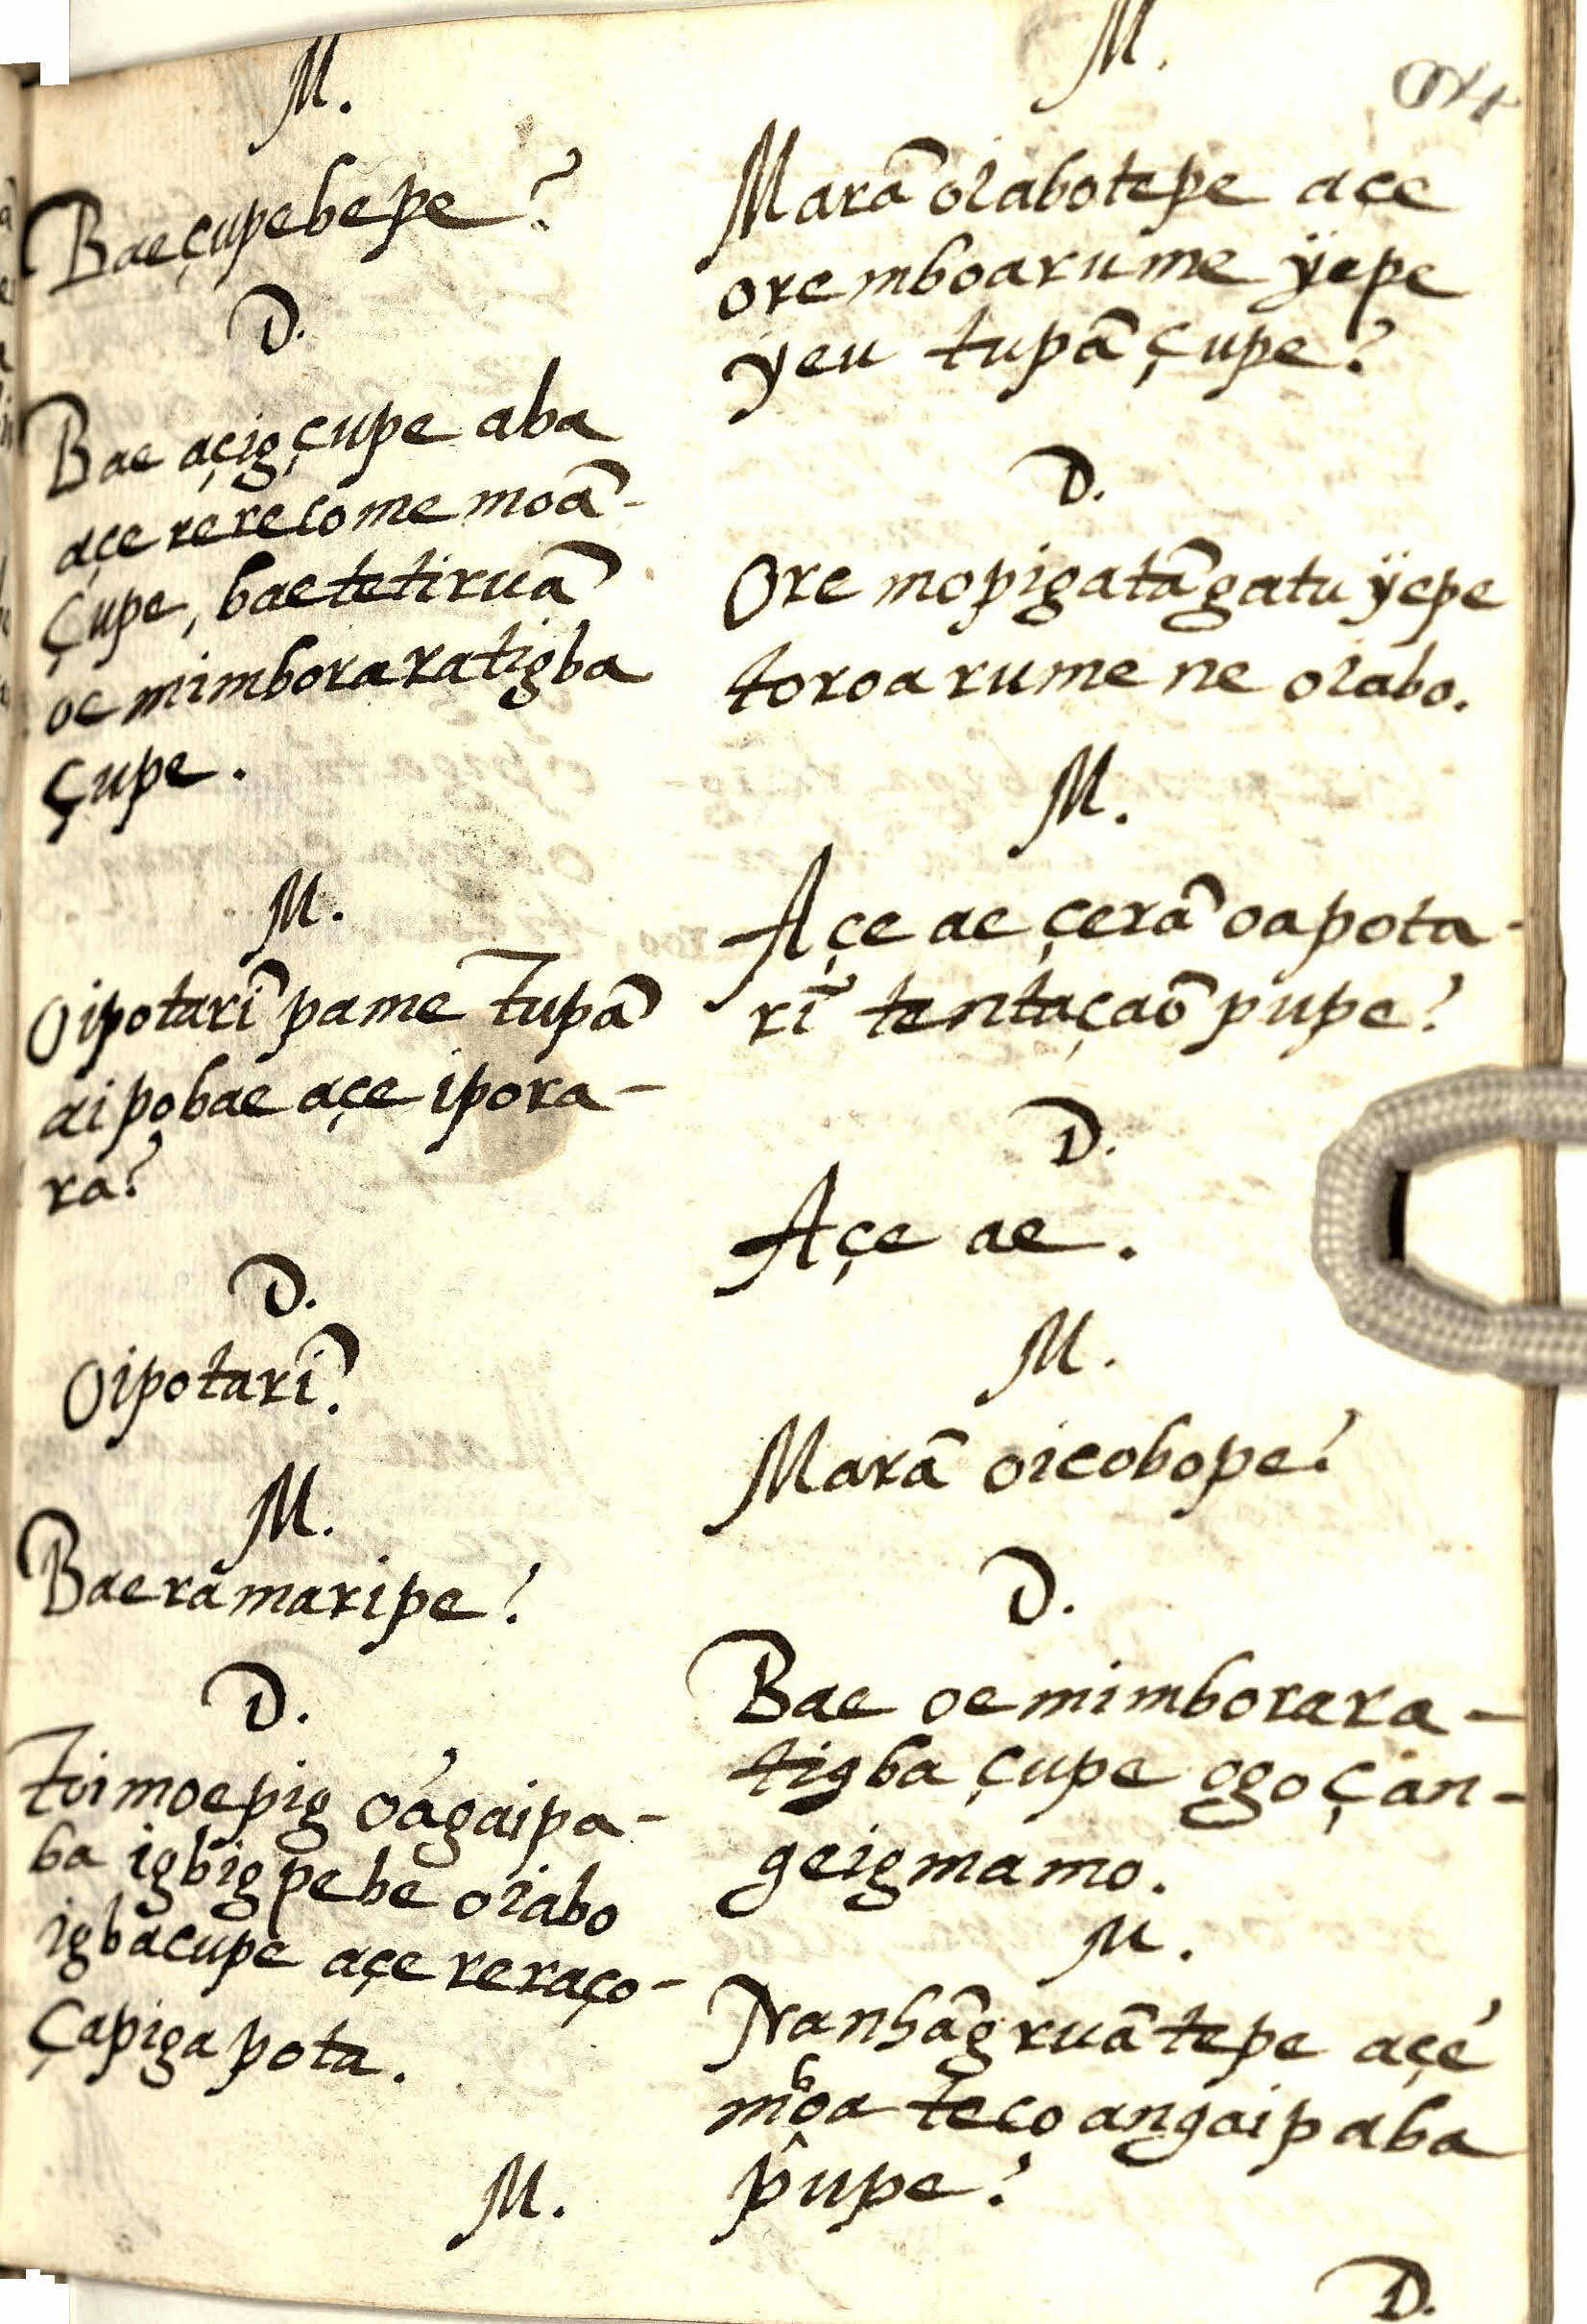 M.
Baeçupebepe?
D.
Bae açigçupe aba
açe rerecome moã-
çupe, baetetiruã
oe mimboraratigba
çupe.
M.
Oipotarĩ pame Tupã
aipobae açe ipora-
ra?
D.
Oipotarĩ.
M.
Baeramaripe?
D.
Toimoepig oágaipa-
ba igbigpebe oiabo
igbacupe açe reraço-
çapiga pota.
M.
M.
Marã oiabotepe açe
ore mboarume ÿepe
yeu tupã çupe?
D.
Ore mopigatãgatu ÿepe
toroarume ne oiabo.
M.
Açe ae çerã oapota-
rĩ tentaçaõ pupe?
D.
Açe ae.
M.
Marã oicobope?
D.
Bae oemimborara-
tigba çupe ogoçan-
geigmamo.
M.
Nanhãgruãtepe açé
mboa teco angaipaba
pupe?
D.